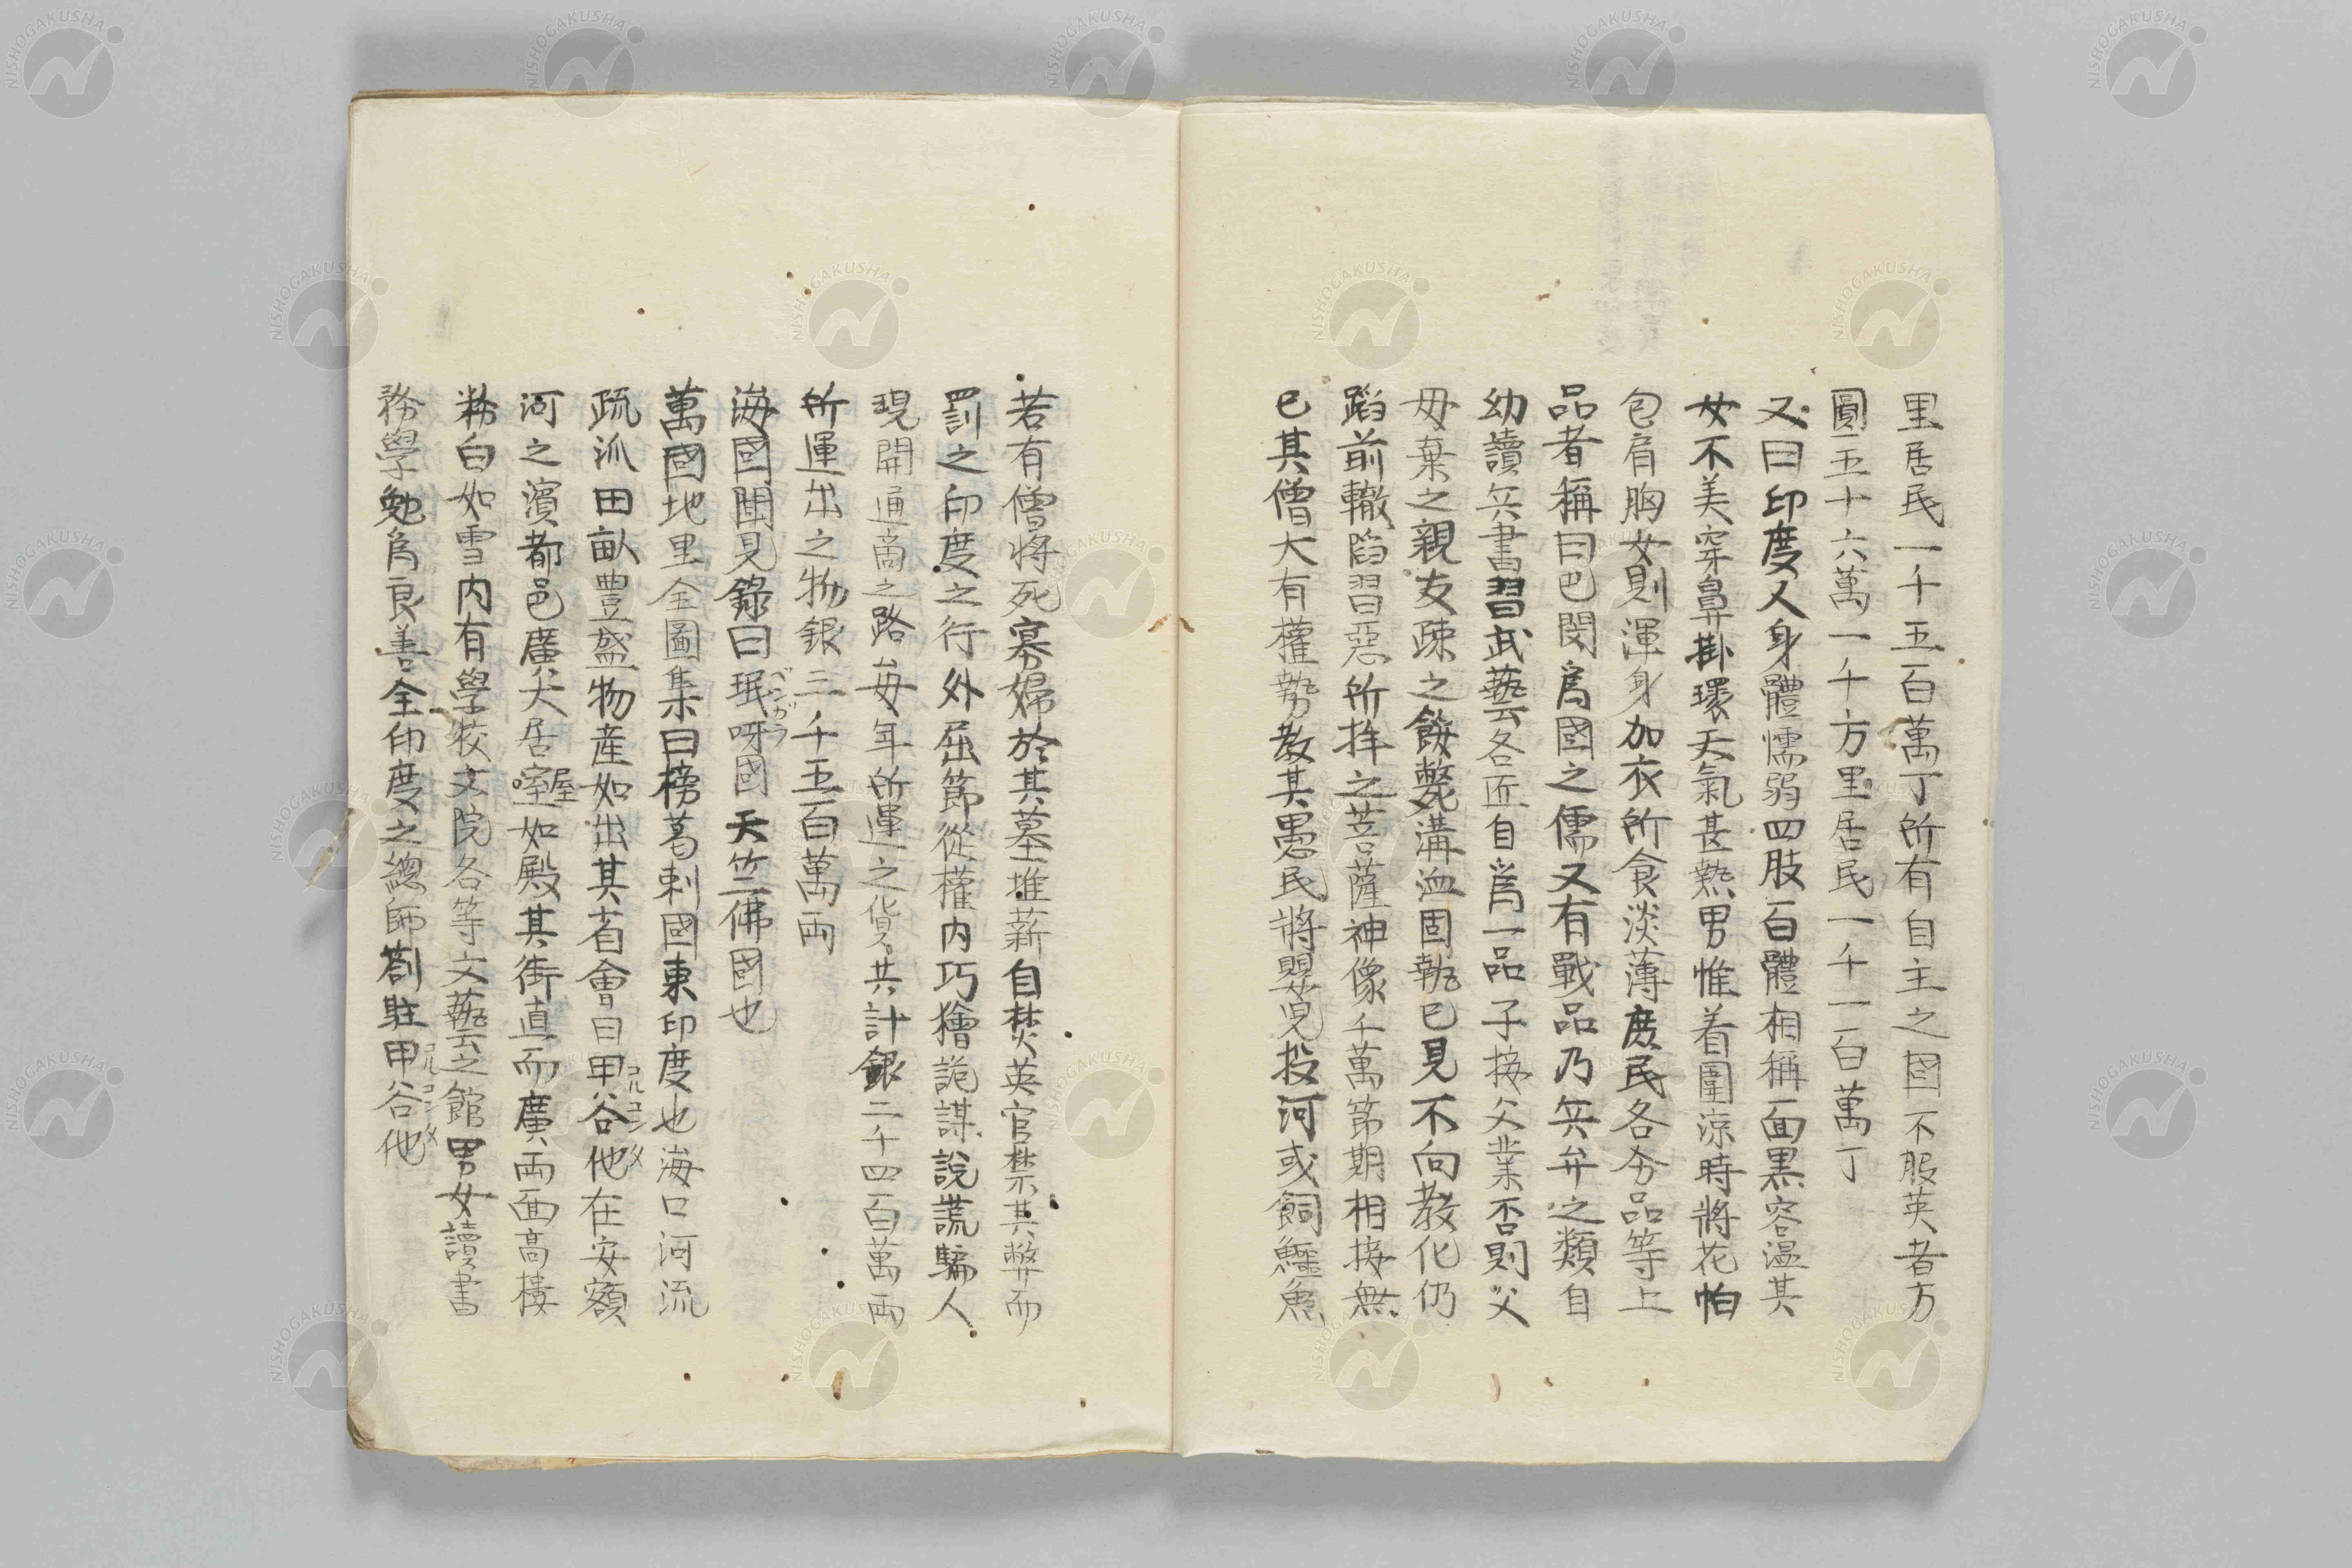 里居民一千五百萬丁所有自主之国不服英者方
圓五十六萬一千方里居民一千一百萬丁
又曰印度人身體懦弱四肢百體相稱面黒容温其
女不美穿鼻掛環天氣甚熱男惟着圍凉時將花帕
包肩胸女則渾身加衣所食淡薄庶民各分品等上
品者稱曰巴閔爲國之儒又有戰品乃兵弁之類自
幼讀兵書習武藝各匠自爲一品子接父業否則父
母棄之親友疎之餓斃溝洫固執已見不向教化仍
蹈前轍陷習惡所拜之菩薩神像千萬第期相接無
已其僧大有權勢教其愚民將嬰児投河或飼鱷魚
若有僧將死寡婦於其墓堆薪自焚英官禁其弊而
罰之印度之行外屈節從權内巧獪詭謀説謊騙人
現開通商之路毎年所運之貨共計銀二千四百萬両
所運出之物銀三千五百萬両
海國聞見錄曰珉呀國天竺佛國也
べんがら
萬國地里全圖集曰榜葛剌國東印度也海口河流
疏派田畝豐盛物産如出其省會曰甲谷他在安額
コルコッタ
河之濱都邑廣大居室如殿其街直而廣両面高樓
屋
粉白如雪内有學校文院各等文藝之館男女讀書
務學勉爲良善全印度之總師劄駐甲谷他
コルコッタ
NISHOGAKUSHA